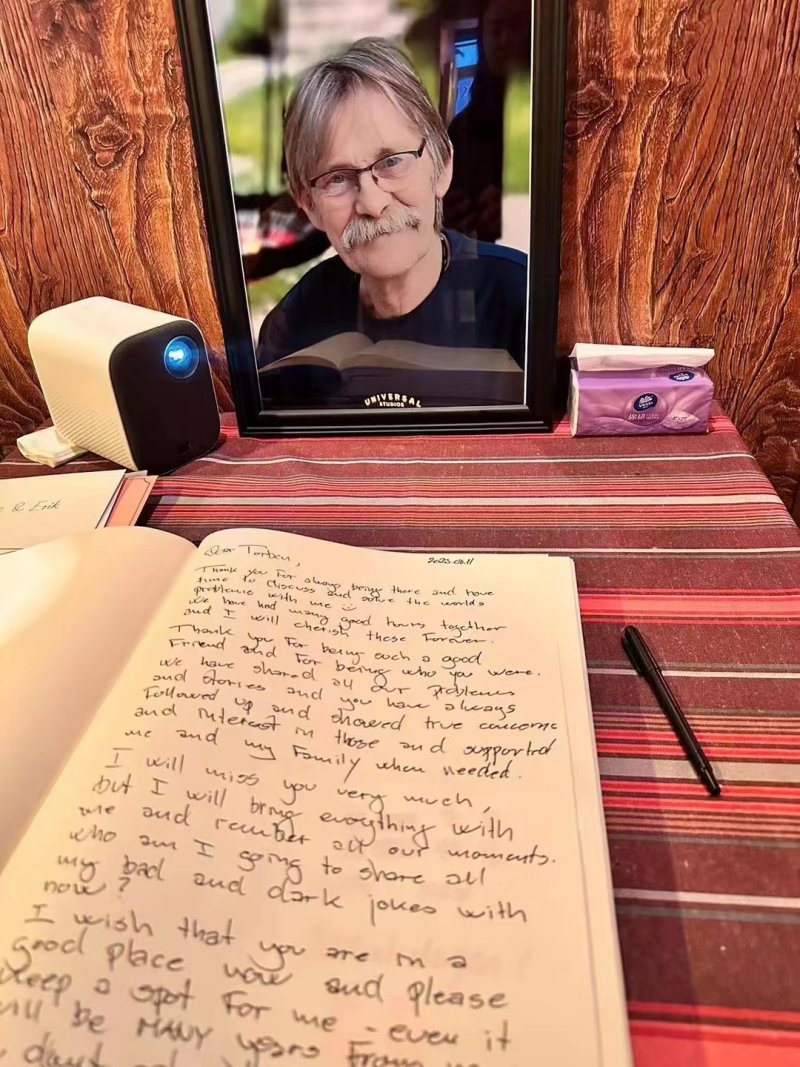 UNIVERSAL
STUDIOS
& Erik
Dear Torben,
2023.08.11
Thank you For always being there and have
time to discuss and solve the worlds
problems with me
We have had many good hours together
and I will cherish these Forever.
Thank you For being such a good
Friend and For being who you were.
We have shared all our problems
and stories and you have always
Followed up and showed true concerns
and interest in those and supported
me and my Family when needed.
I will miss you very much,
but I will bring everything with
me and rember all our moments.
who am I going to share all
my bad and dark jokes with
now?
I wish that you are in a
good place now and please
keep a spot For me - even it
will be MANY years From